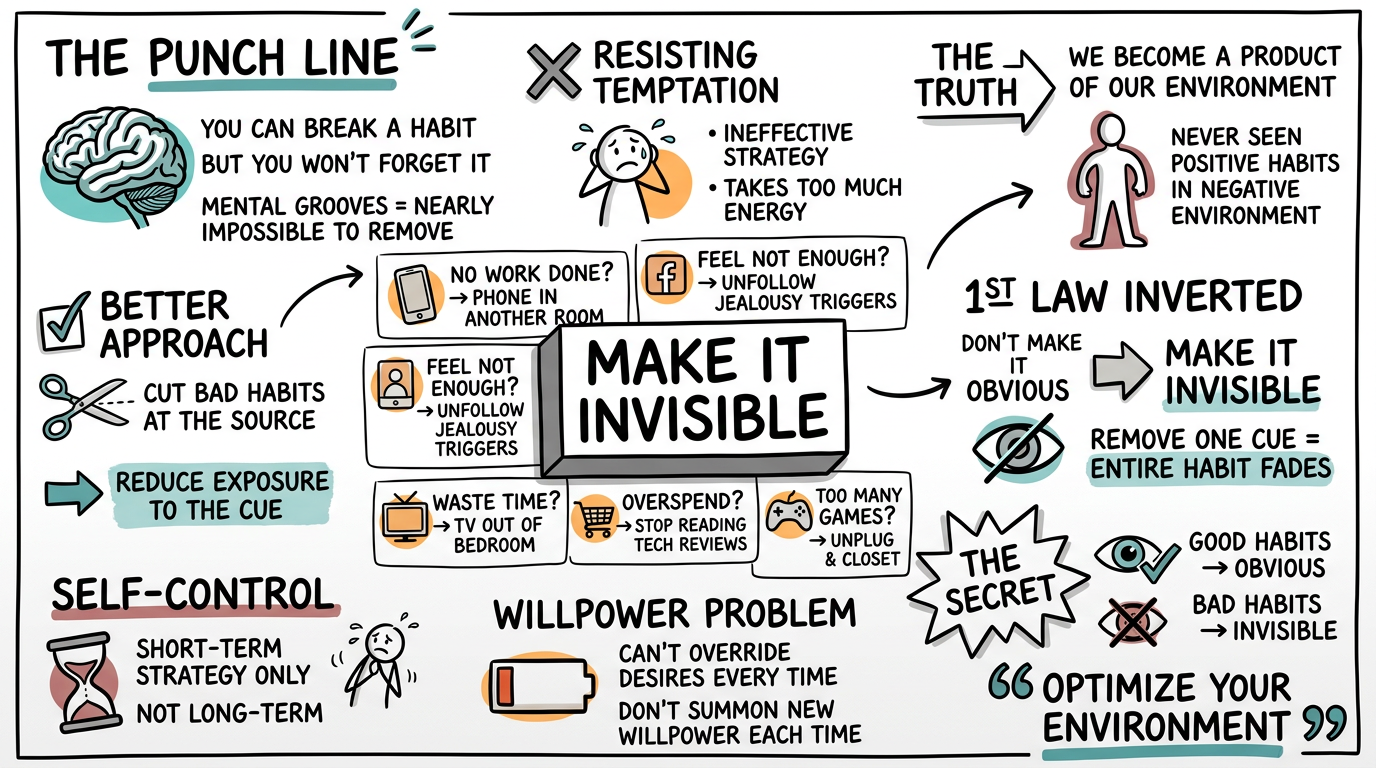 THE PUNCH LINE
YOU CAN BREAK A HABIT
BUT YOU WON'T FORGET IT
MENTAL GROOVES = NEARLY
IMPOSSIBLE TO REMOVE
RESISTING
TEMPTATION
• INEFFECTIVE
STRATEGY
• TAKES TOO MUCH
ENERGY
THE
TRUTH
WE BECOME A PRODUCT
OF OUR ENVIRONMENT
NEVER SEEN
POSITIVE HABITS
IN NEGATIVE
ENVIRONMENT
BETTER
APPROACH
CUT BAD HABITS
AT THE SOURCE
REDUCE EXPOSURE
TO THE CUE
NO WORK DONE?
→ PHONE IN
ANOTHER ROOM
f
FEEL NOT ENOUGH?
→ UNFOLLOW
JEALOUSY TRIGGERS
FEEL NOT
ENOUGH?
→ UNFOLLOW
JEALOUSY
TRIGGERS
MAKE IT
INVISIBLE
WASTE TIME?
→ TV OUT OF
BEDROOM
OVERSPEND?
→ STOP READING
TECH REVIEWS
TOO MANY
GAMES?
→ UNPLUG
& CLOSET
1ST LAW INVERTED
DON'T MAKE
IT
OBVIOUS
MAKE IT
INVISIBLE
REMOVE ONE CUE =
ENTIRE HABIT FADES
THE
SECRET
GOOD HABITS
→ OBVIOUS
BAD HABITS
→ INVISIBLE
SELF-CONTROL
SHORT-TERM
STRATEGY ONLY
NOT LONG-TERM
WILLPOWER PROBLEM
CAN'T OVERRIDE
DESIRES EVERY TIME
DON'T SUMMON NEW
WILLPOWER EACH TIME
“OPTIMIZE YOUR
ENVIRONMENT”